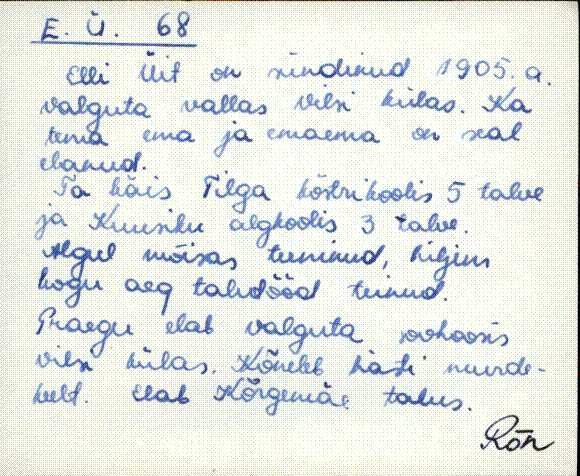 E. Ü. 68
Elli Üit on sündinud 1905. a.
Valguta vallas Vilsi külas. Ka
tema ema ja emaema on seal
elanud.
Ta käis Tilga köstrikoolis 5 talve
ja Kuusiku algkoolis 3 talve.
Algul mõisas teeninud, hiljem
kogu aeg talutööd teinud.
Praegu elab Valguta sovhoosis
Vilsi külas. Kõneleb hästi murde-
keelt. Elab Kõrgemäe talus.
Rõn